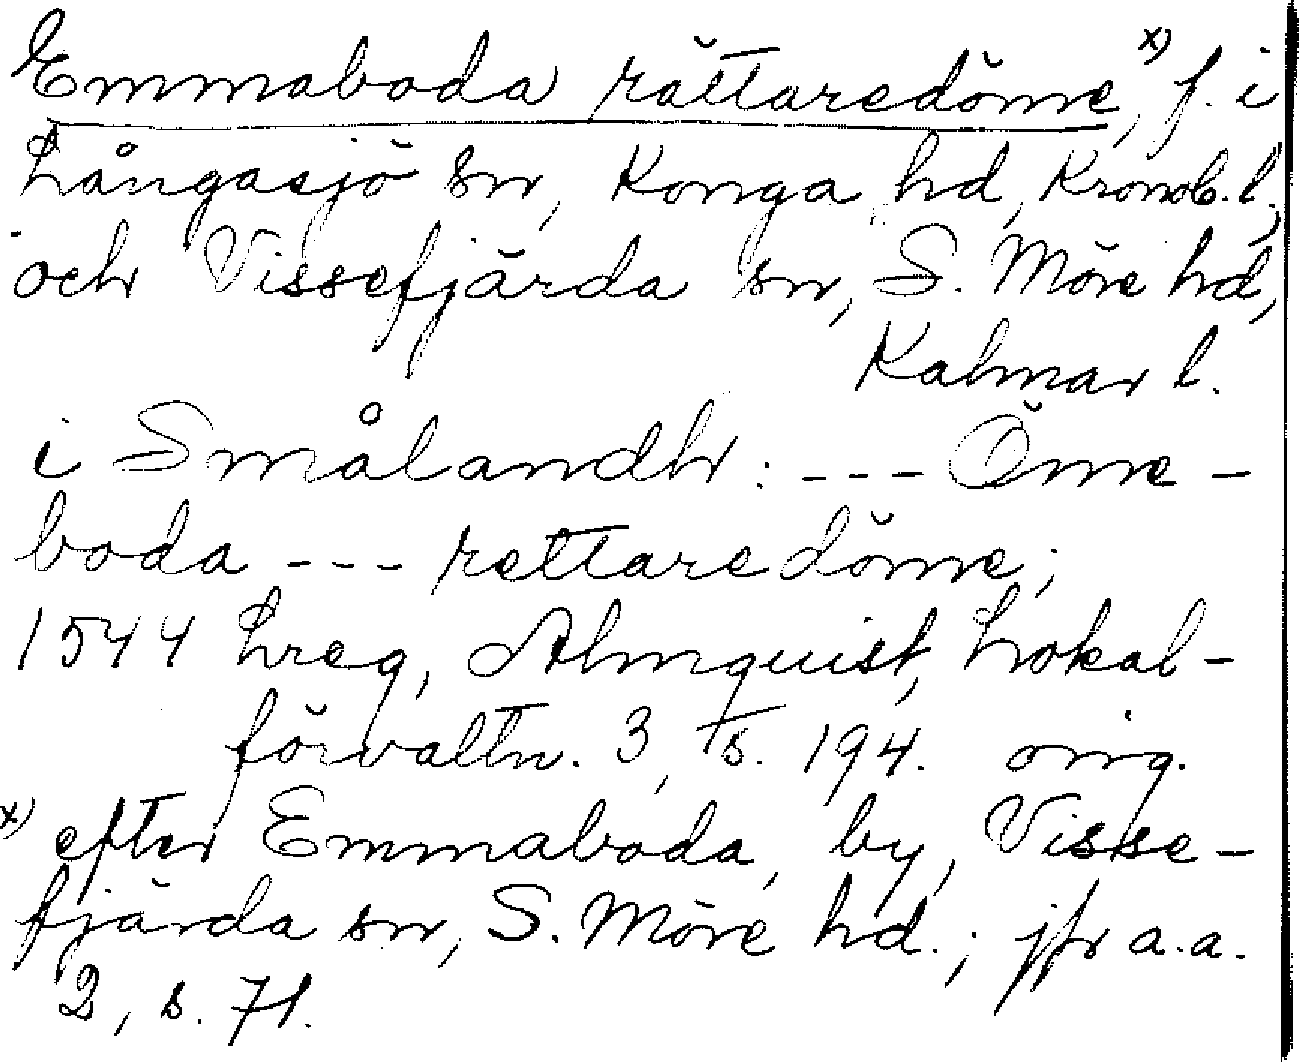 Emmaboda rättaredöme,x) f. i
Långasjö sn, Konga hd, Kronob. l.,
och Vissefjärda sn, S. Möre hd,
Kalmar l.
i Smålandh: --- Öme-
boda --- rettaredöme;
1544 Lreg, Almquist, Lokal-
förvaltn. 3, s. 194. orig.
x) efter Emmaboda, by, Visse-
fjärda sn, S. Möre hd.; jfr a.a.
2, s. 71.